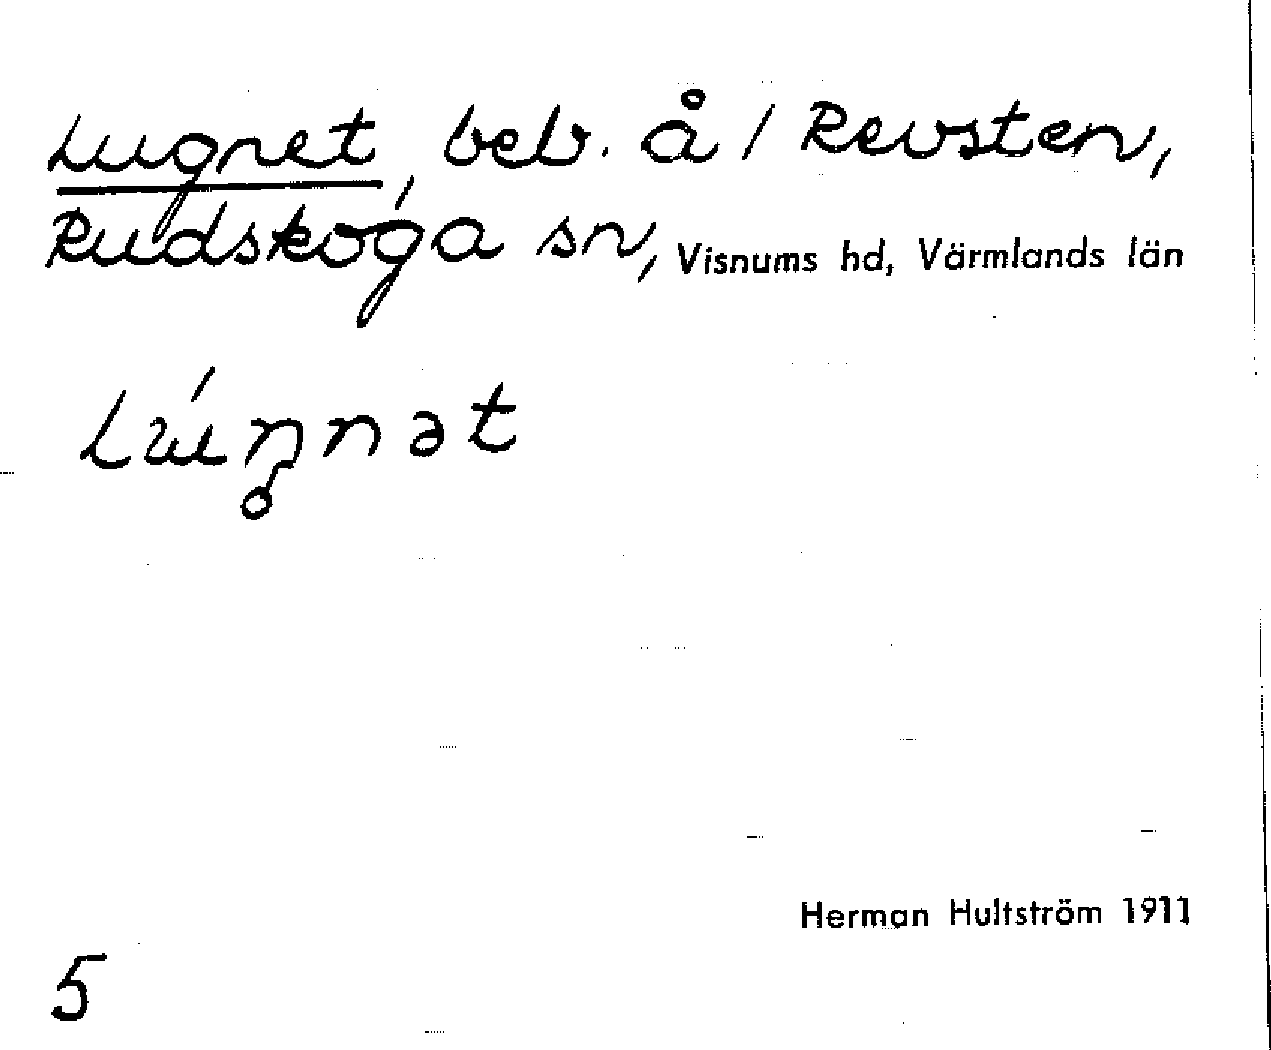 Lugnet, beb. å / Revsten,
Rudskoga sn, Visnums hd, Värmlands län
Herman Hultström 1911
5